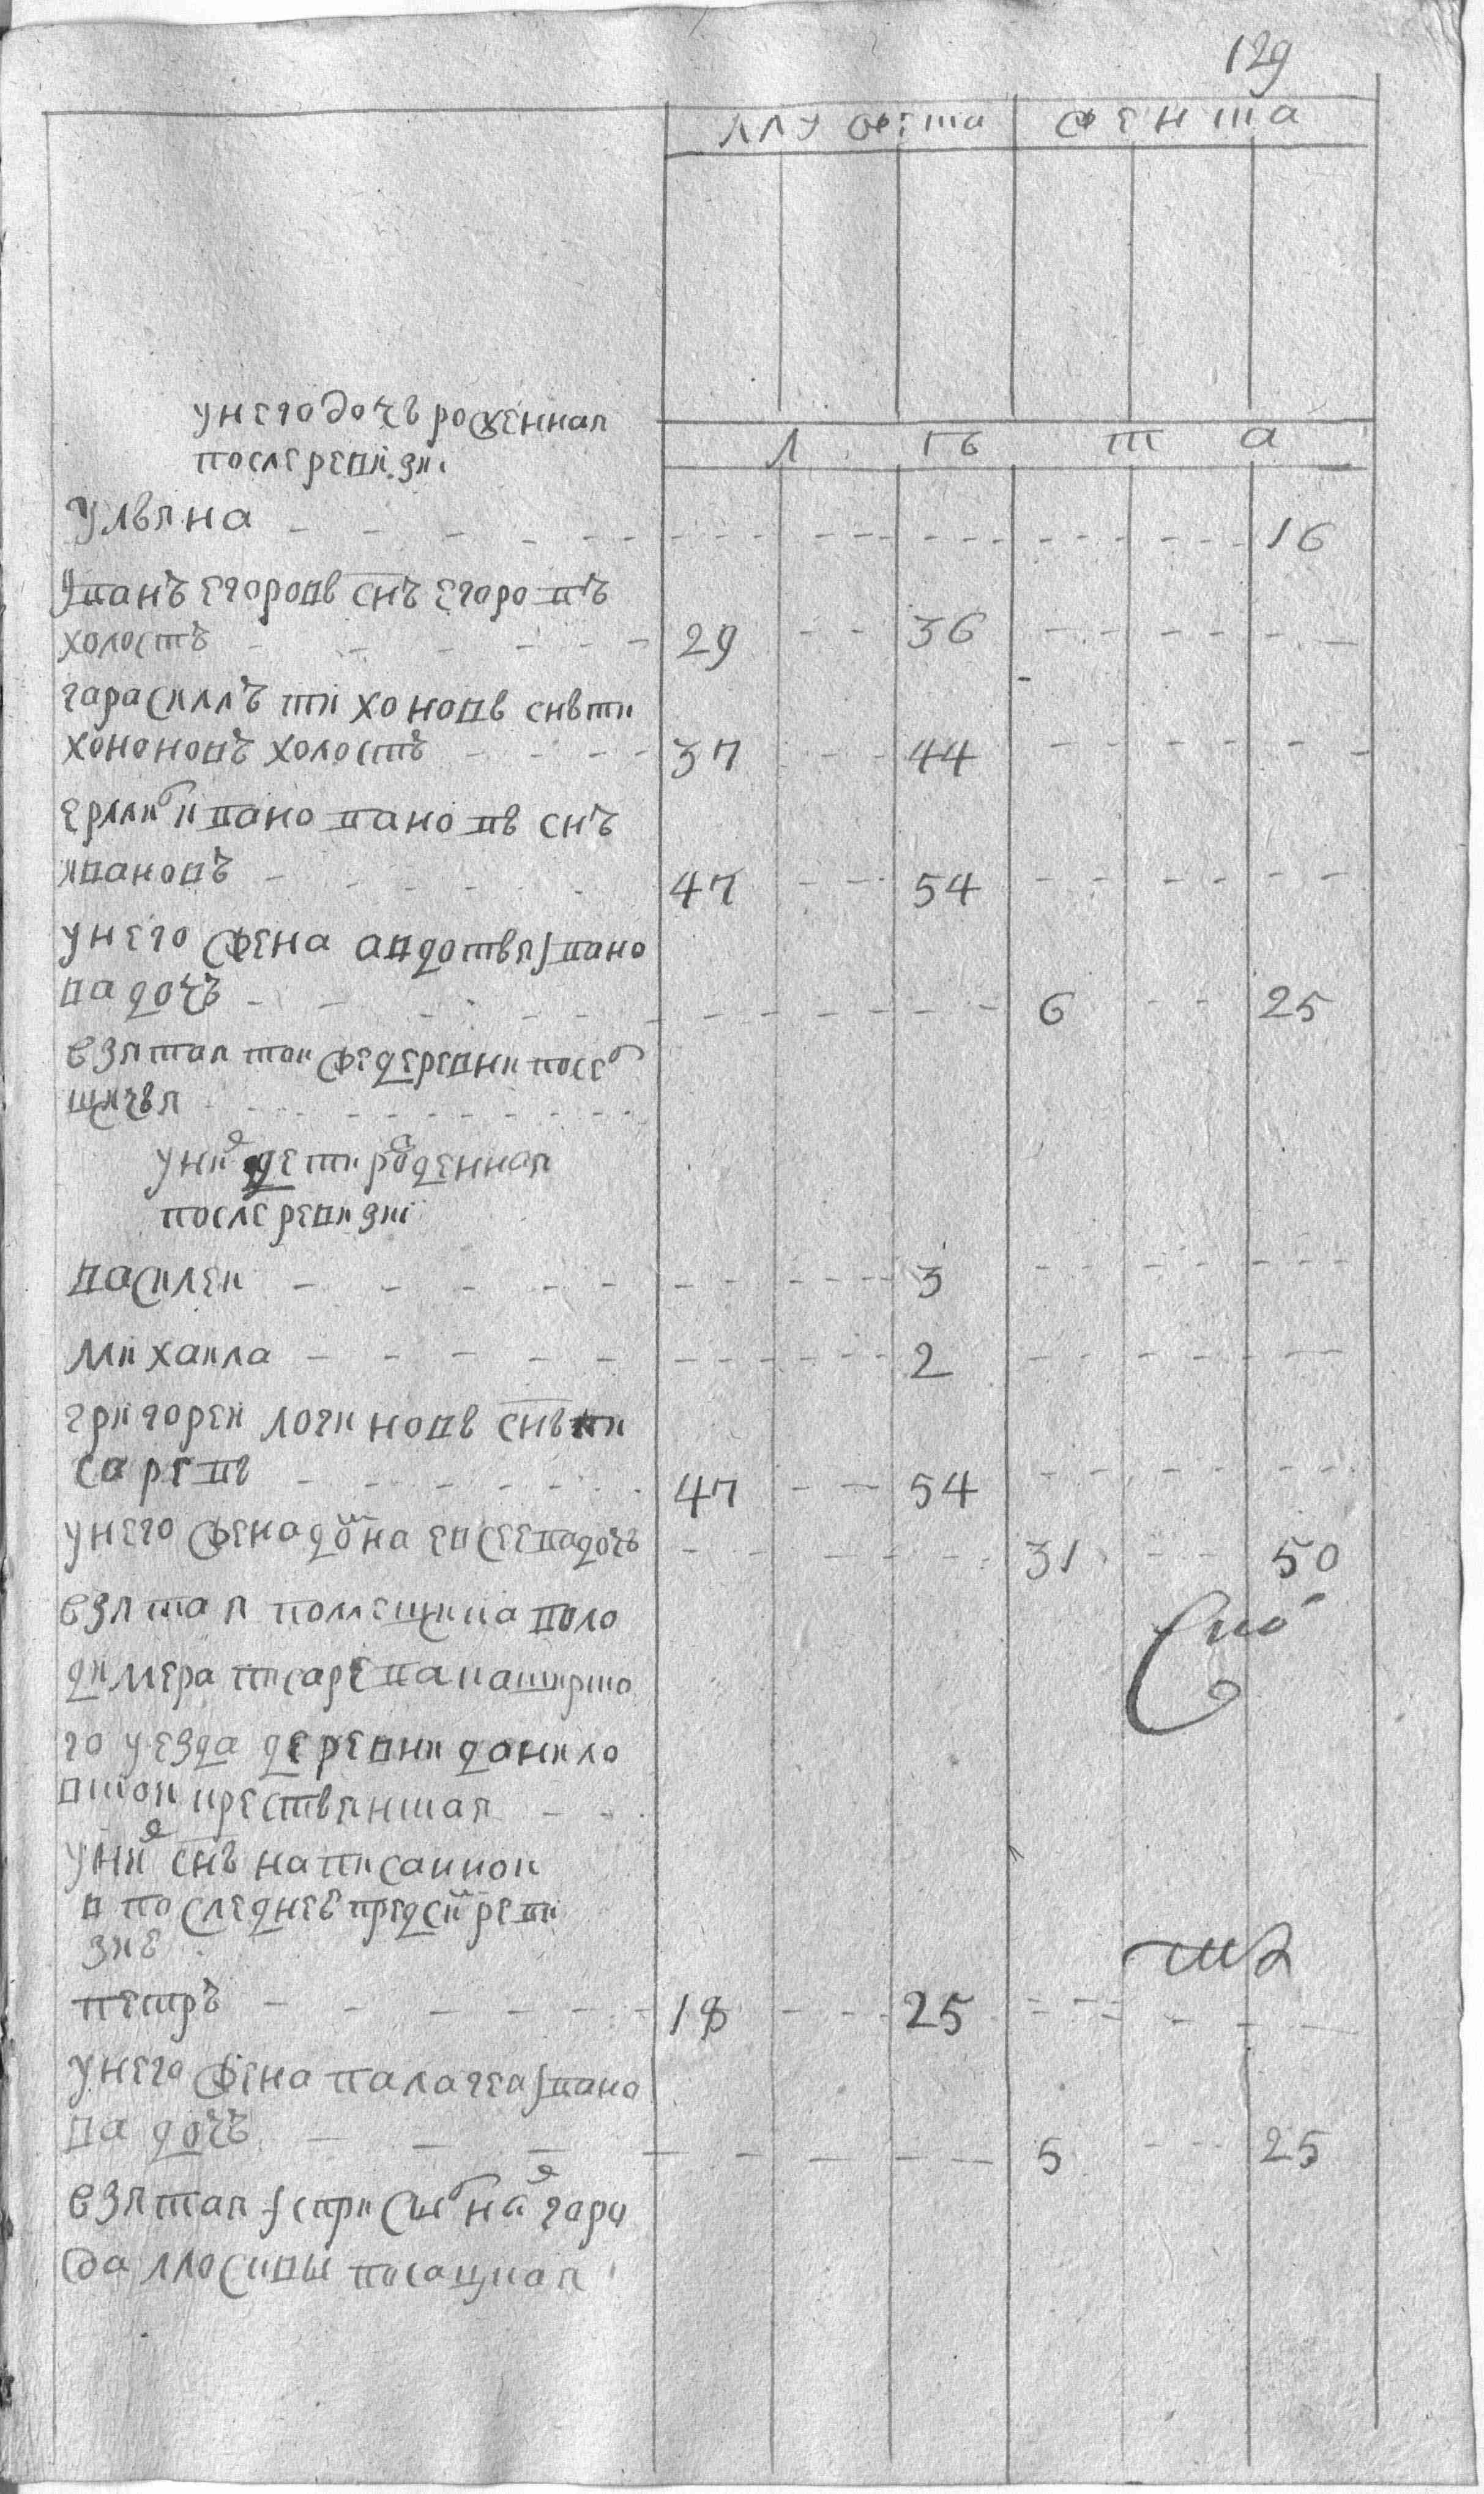 129
мужеска женска
л ѣ т а
у него дочь роженная
после ревизиi
Ульяна 16
Иванъ Егоровъ снъ Егоровъ
холостъ 29 36
Гарасимъ Тихоновъ снъ Ти
хононовъ холостъ 37 44
Ермил Ивано Иановъ снъ
Ивановъ 47 54
у него жена Авдотья Ивано
ва дочь 6 25
взятая той же деревни посе
щичья
у них дети рожденная
после ревизиi
Василеи 3
Михаила 2
Григореи Логиновъ снъ Пи
саревъ 47 54
у него жена Домна Евсеева дочь 31 50
взятая помещика Воло
димера Писарева каширско
го уезда деревни Данило
вской крестьянская
у них снъ написанной
в последнее пред сим реви
зие
Петръ 18 25
у него жена Палагея Ивано
ва дочь 5 25
взятая ис при на горо
да Москвы посацкая